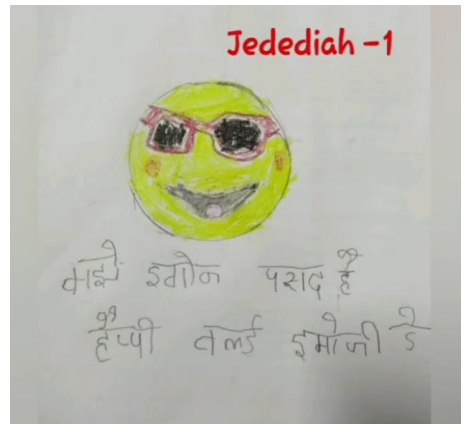 Jedediah -1
मझे इमोज पसद है
हैप्पी वर्ल्ड इमोजी डे